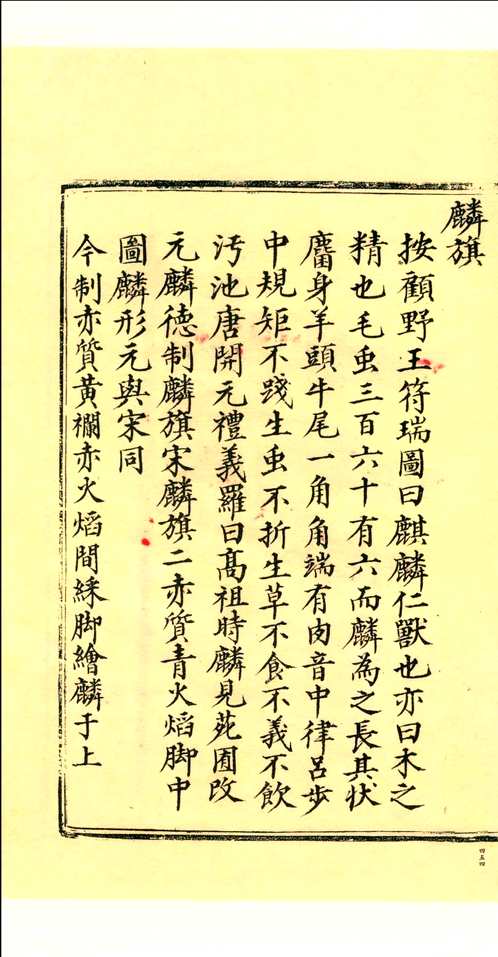 麟旗
按顧野王符瑞圖曰麒麟仁獸也亦曰木之
精也毛虫三百六十有六而麟為之長其狀
麕身羊頭牛尾一角角端有肉音中律呂步
中規矩不踐生虫不折生草不食不義不飲
汚池唐開元禮義羅曰髙祖時麟見苑囿改
元麟德制麟旗宋麟旗二赤質青火熖脚中
圖麟形元與宋同
今制赤質黄襴赤火熖間綵脚繪麟于上
四五四